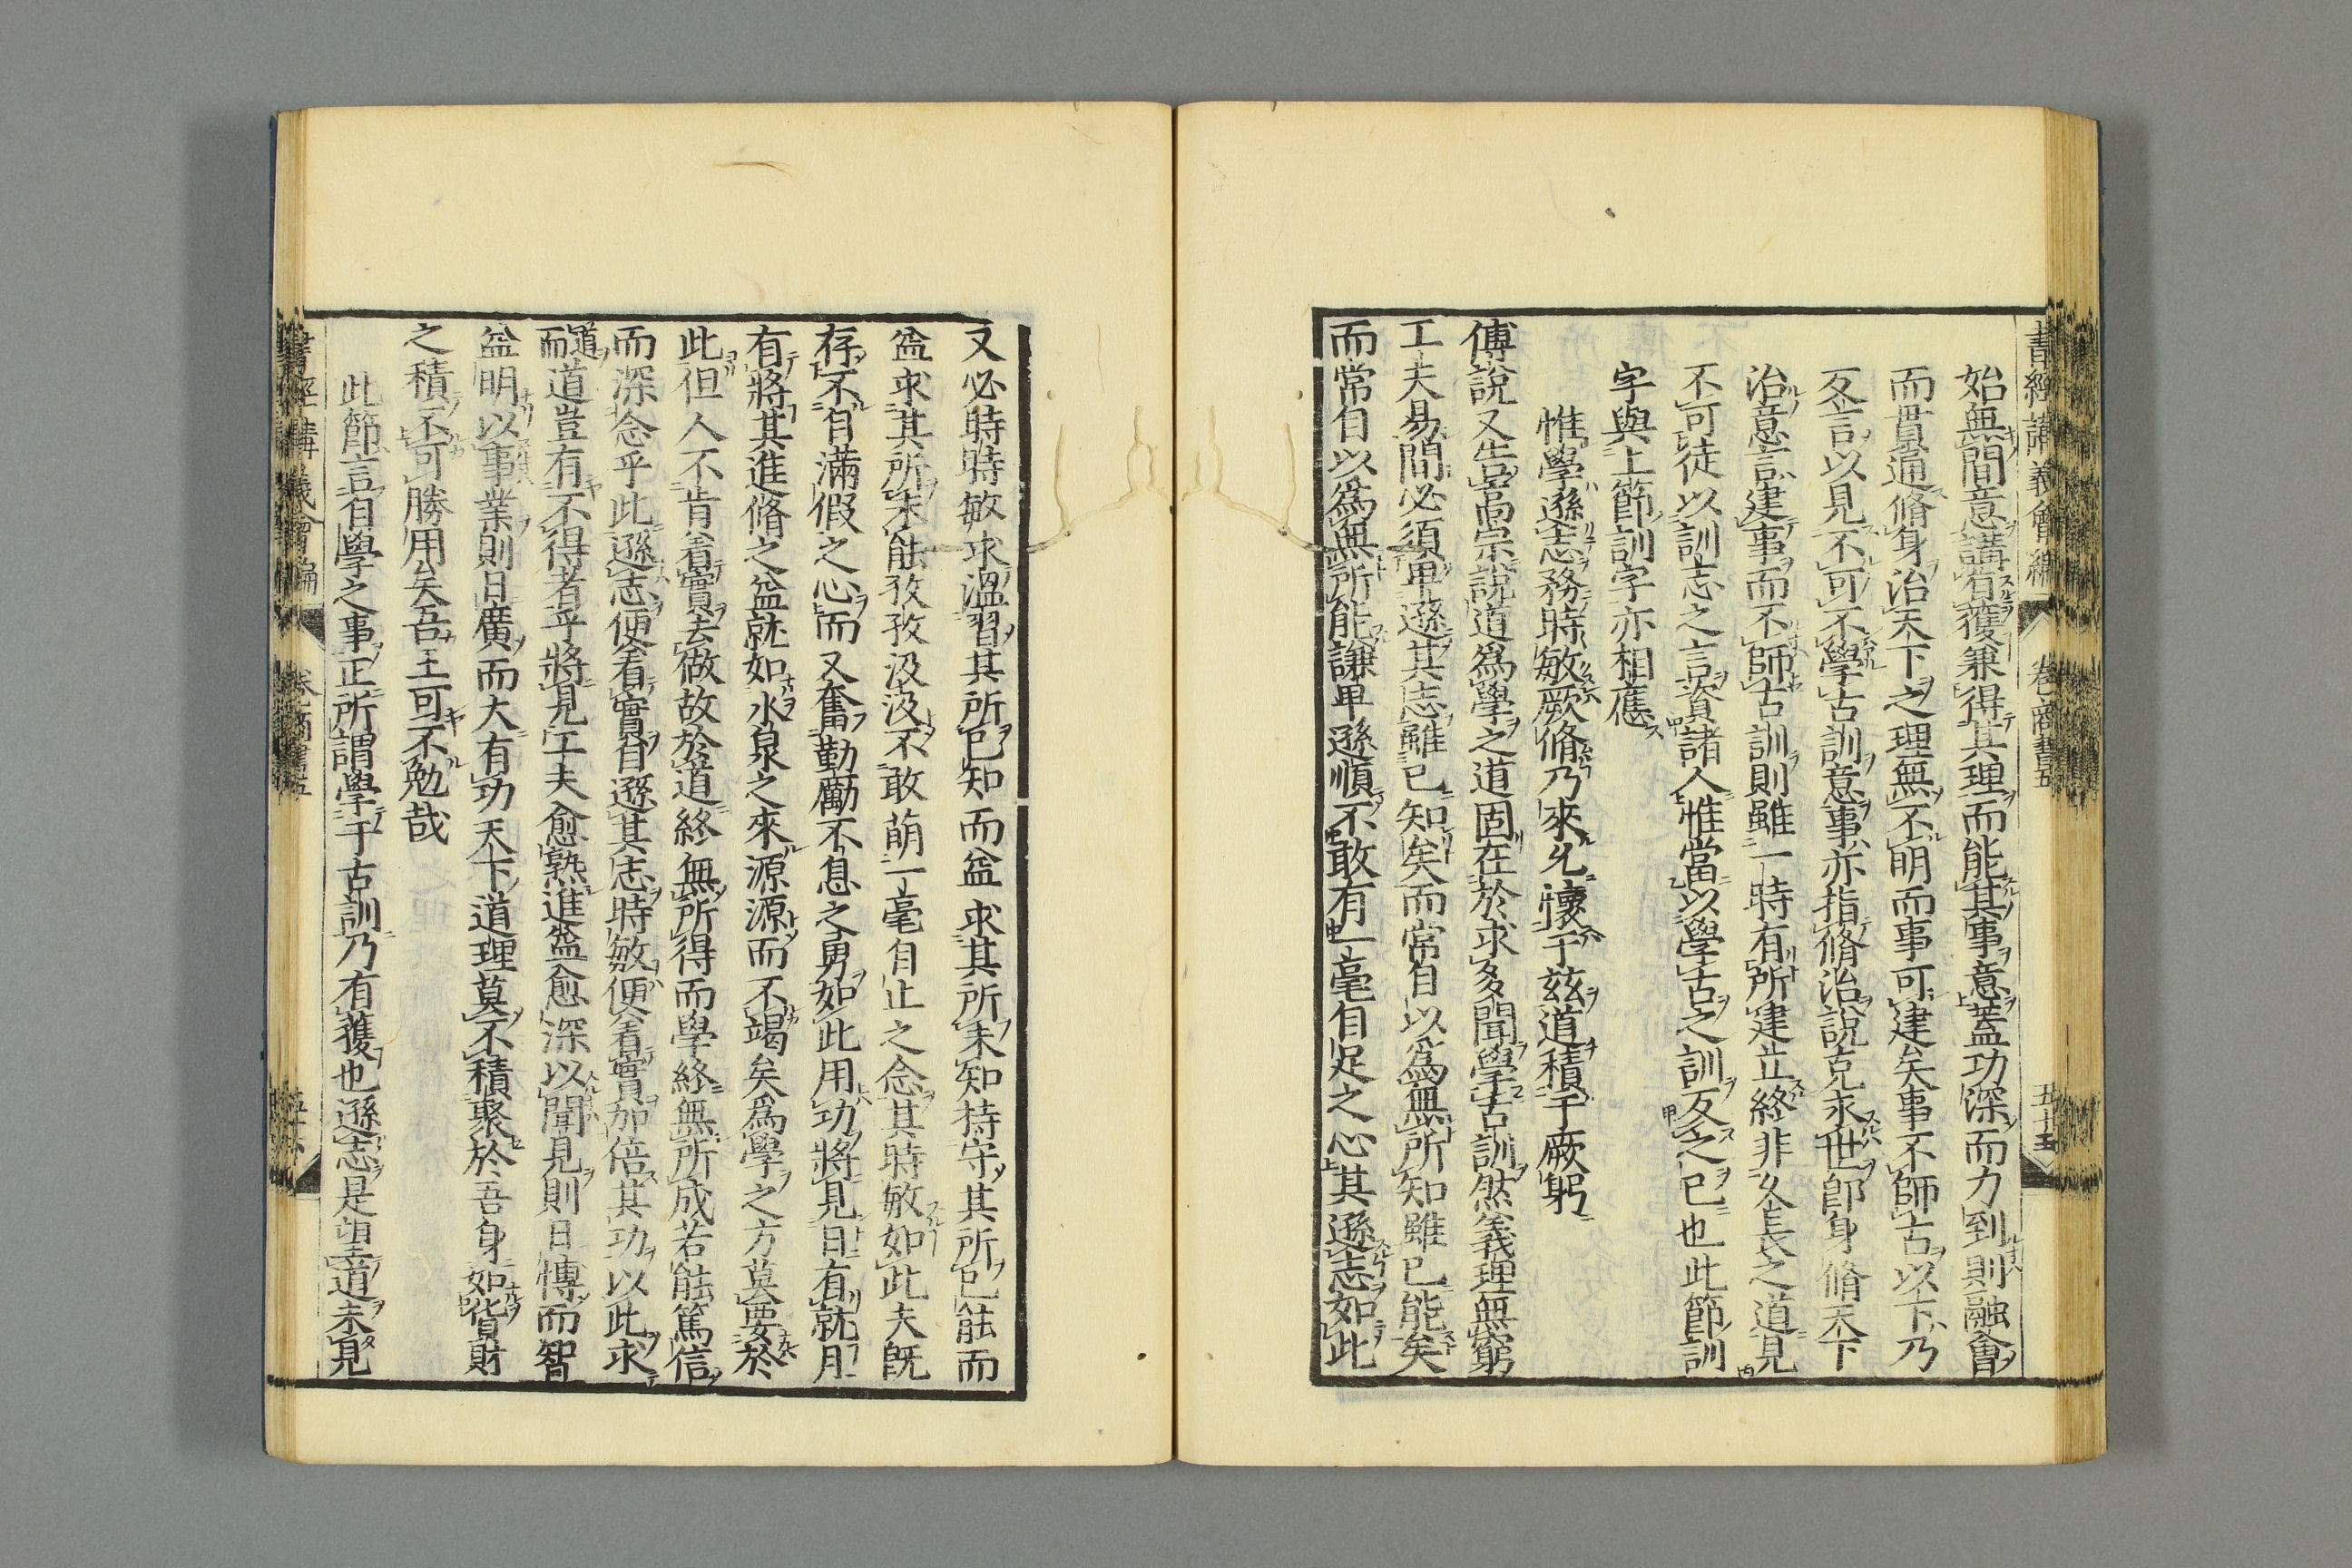 書經講義會編
卷之商書五
五十五
始無間意講有獲兼得其理而能其事意蓋功深而力到則融會
而貫通脩身治天下之理無不明而事可建矣事不師古以下乃
反言以見不可不學古訓意事亦指脩治說克永世卽身脩天下
治意言建事而不師古訓則雖一時有所建立終非久長之道見
不可徒以訓志之言資諸人惟當以學古之訓反之己也此節訓
字與上節訓字亦相應
惟學遜志務時敏厥脩乃來允懷于玆道積于厥躬
傅說又告高宗說道爲學之道固在於求多聞學古訓然義理無窮
工夫易間必須卑遜其志雖已知矣而常自以爲無所知雖已能矣
而常自以爲無所能謙卑遜順不敢有一毫自足之心其遜志如此
又必時時敏求溫習其所已知而益求其所未知持守其所已能而
益求其所未能孜孜汲汲不敢萌一毫自止之念其時敏如此夫旣
存不自滿假之心而又奮勤勵不息之勇如此用功將見日有就月
有將其進脩之益就如水泉之來源源而不竭矣爲學之方莫要於
此但人不肯着實去做故於道終無所得而學終無所成若能篤信
而深念乎此遜志便着實自遜其志時敏便着實加倍其功以此求
道而道豈有不得者乎將見工夫愈熟進益愈深以聞見則日博而智
益明以事業則日廣而大有功天下道理莫不積聚於吾身如貨財
之積不可勝用矣吾王可不勉哉
此節言自學之事正所謂學于古訓乃有獲也遜志是望道未見
書經講義會編
卷之商書五
五十六